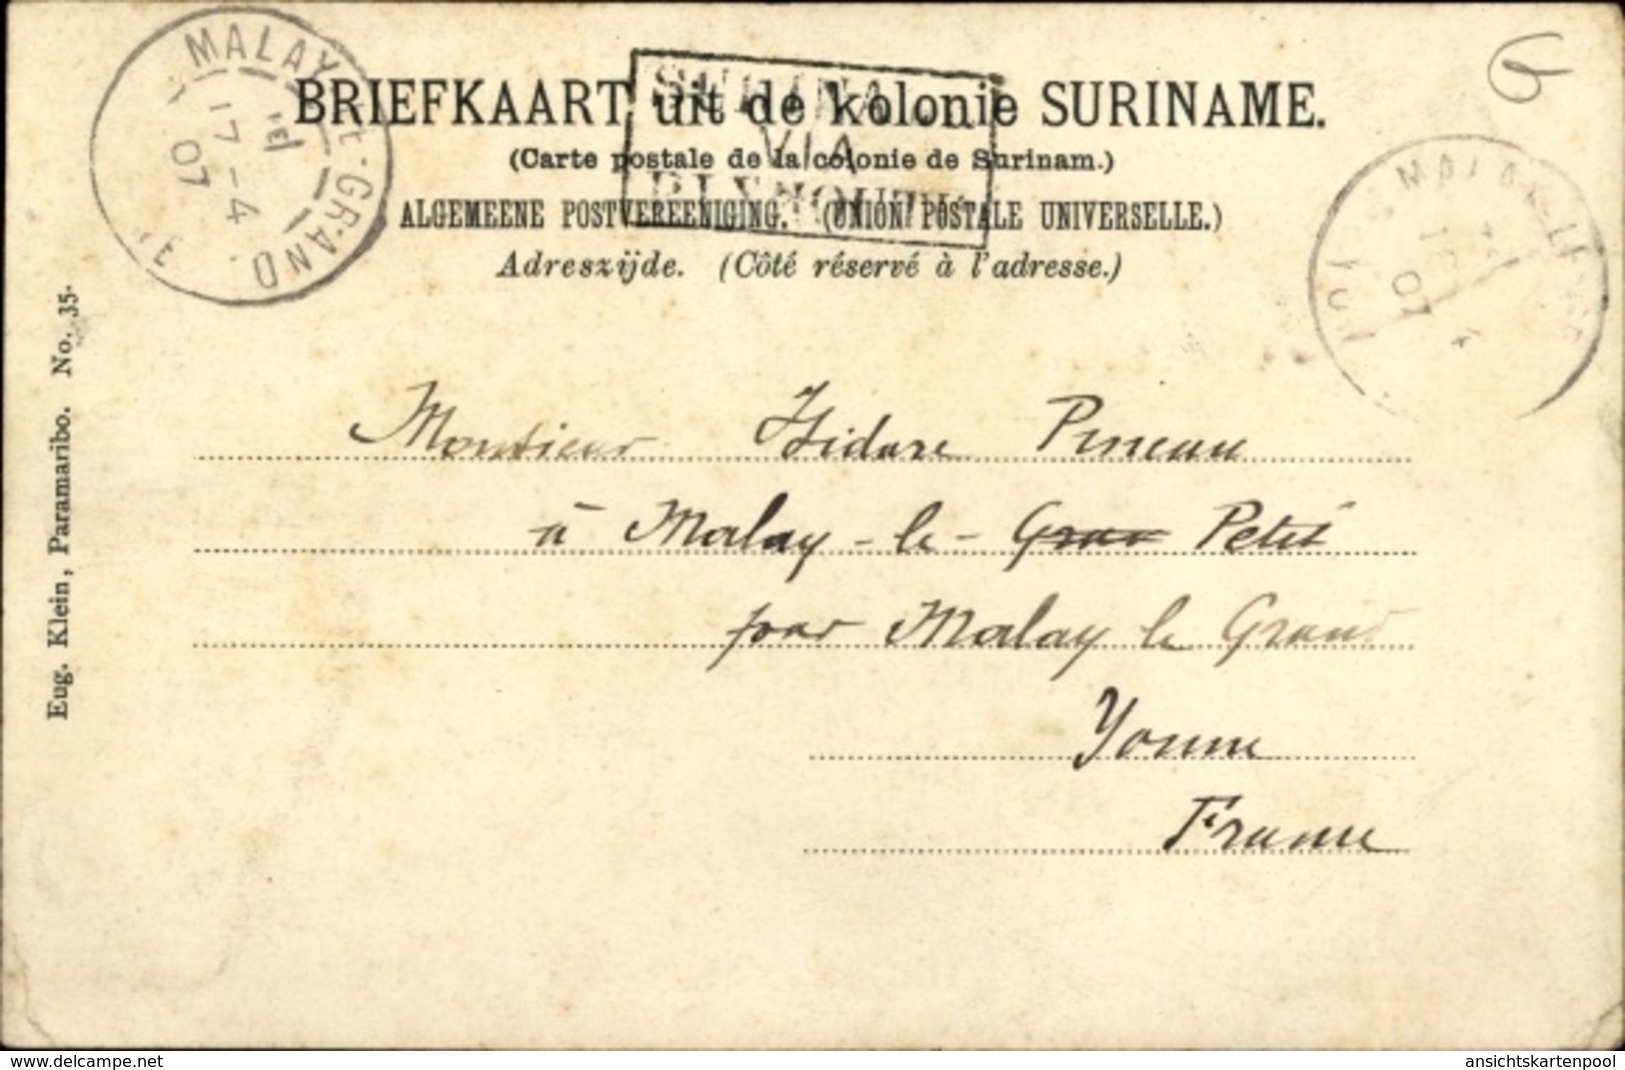 MALAY-LE-GRAND
17 - 4
07
BRIEFKAART uit de kolonie SURINAME.
(Carte postale de la colonie de Surinam.)
ALGEMEENE POSTVEREENIGING. (UNION POSTALE UNIVERSELLE.)
Adreszijde. (Côté réservé à l'adresse.)
VIA
PLYMOUTH
07
Eug. Klein, Paramaribo. No. 35.
Monsieur Isidore Pineau
à Malay-le- Gran Petit
par Malay le Grand
Yonne
France
www.delcampe.net
ansichtskartenpool